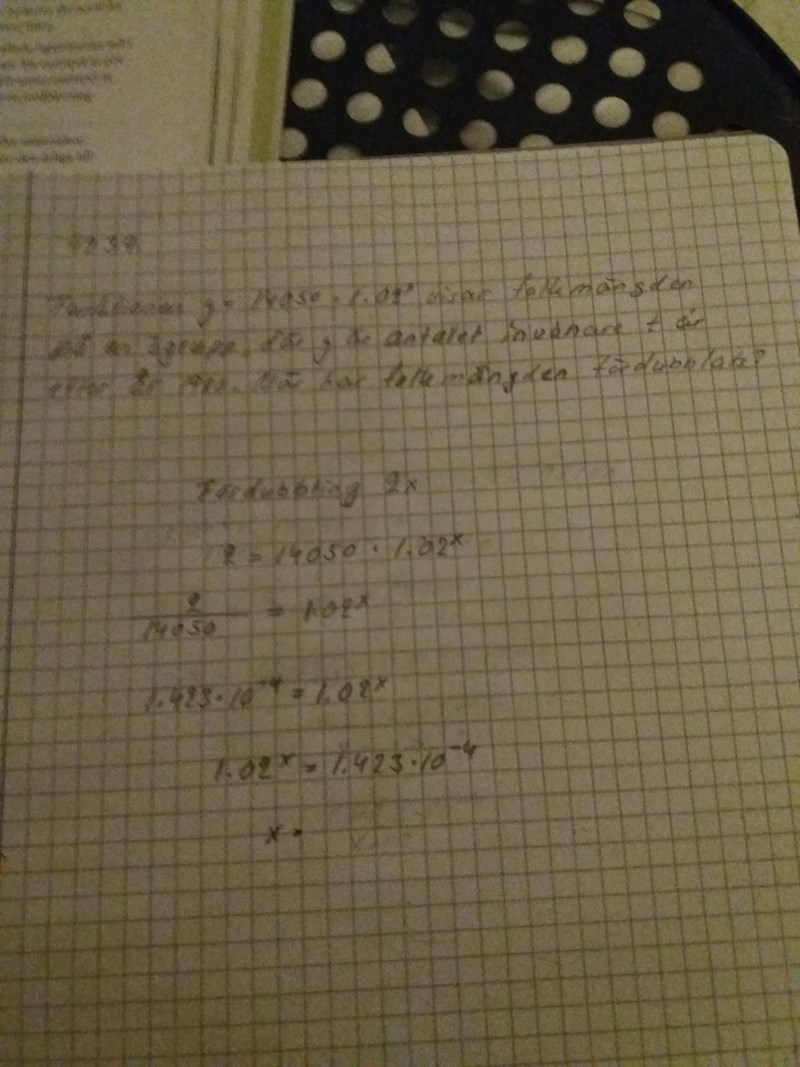 Funktionen y = 14050 · 1.02ˣ visar folkmängden
på en ögrupp, där y är antalet invånare t år
efter år När har folkmängden fördubblats?
Fördubbling 2x
2 = 14050 · 1.02ˣ
2/14050 = 1.02ˣ
1.423 · 10⁻⁴ = 1.02ˣ
1.02ˣ = 1.423 · 10⁻⁴
x =